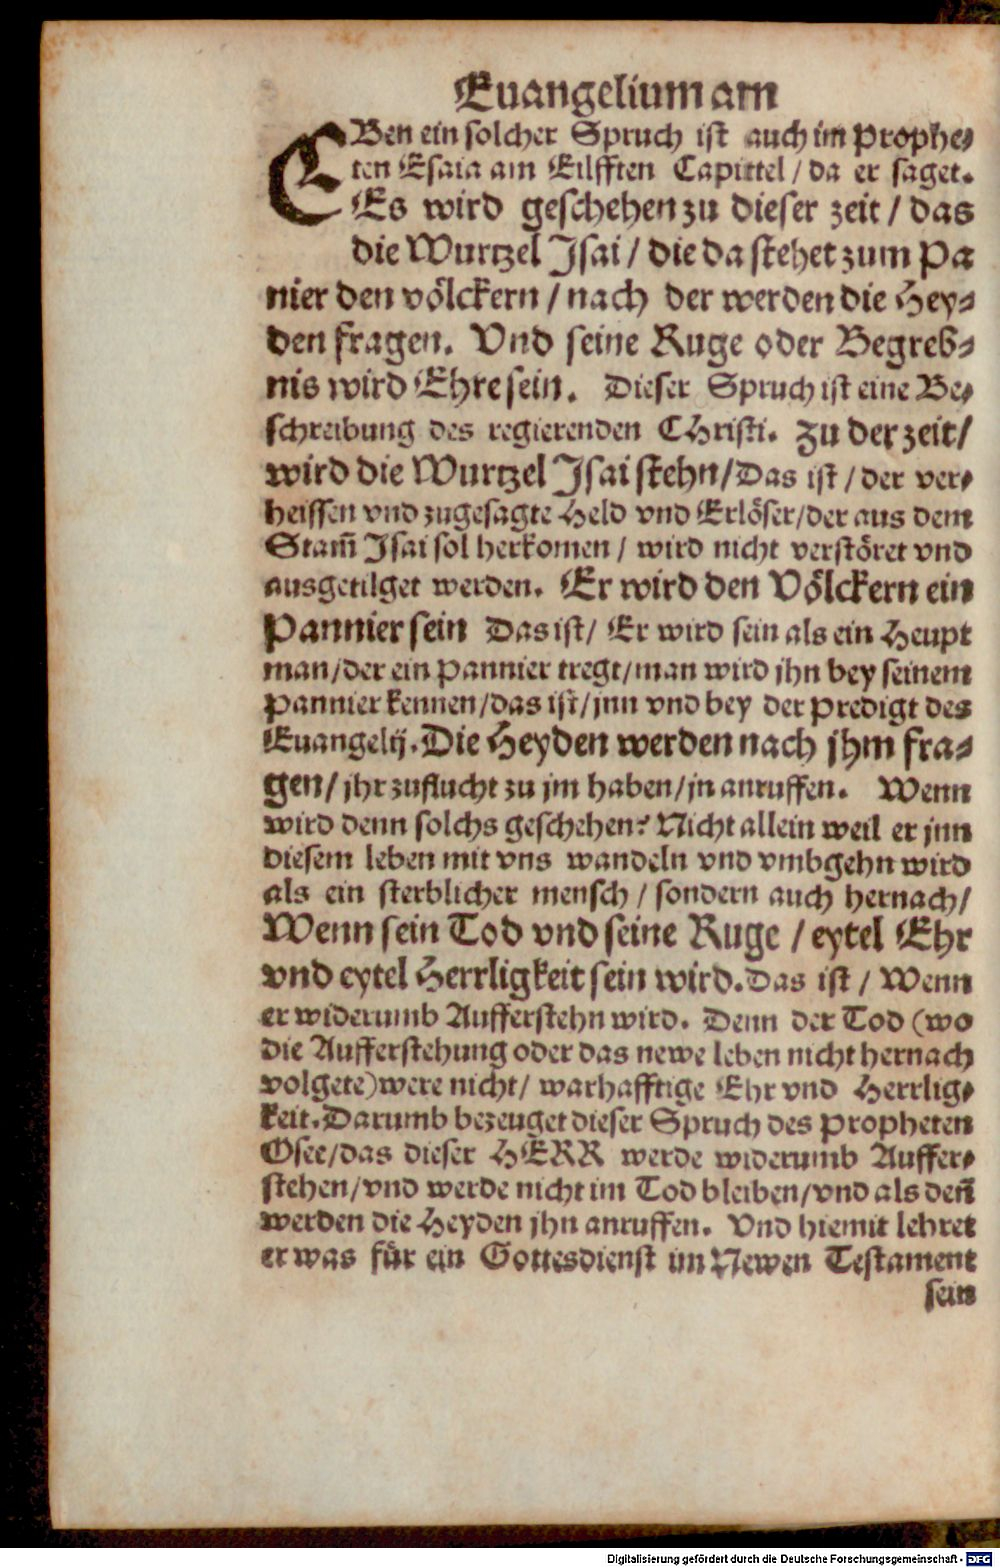 Euangelium am
EBen ein solcher Spruch ist auch im Prophe⸗
ten Esaia am Eilfften Capittel / da er saget.
Es wird geschehen zu dieser zeit / das
die Wurtzel Jsai / die da stehet zum Pa
nier den völckern / nach der werden die Hey⸗
den fragen. Vnd seine Ruge oder Begreb⸗
nis wird Ehre sein. Dieser Spruch ist eine Be⸗
schreibung des regierenden CHristi. Zu der zeit /
wird die Wurtzel Jsai stehn / Das ist / der ver⸗
heissen vnd zugesagte Held vnd Erlöser / der aus dem
Stam̃ Jsai sol herkomen / wird nicht verstöret vnd
ausgetilget werden. Er wird den Völckern ein
Pannier sein Das ist / Er wird sein als ein Heupt
man / der ein Pannier tregt / man wird jhn bey seinem
Pannier kennen / das ist / jnn vnd bey der Predigt des
Euangelij. Die Heyden werden nach jhm fra⸗
gen / jhr zuflucht zu jm haben / jn anruffen. Wenn
wird denn solchs geschehen? Nicht allein weil er jnn
diesem leben mit vns wandeln vnd vmbgehn wird
als ein sterblicher mensch / sondern auch hernach /
Wenn sein Tod vnd seine Ruge / eytel Ehr
vnd eytel Herrligkeit sein wird. Das ist / Wenn
er widerumb Aufferstehn wird. Denn der Tod (wo
die Aufferstehung oder das newe leben nicht hernach
volgete) were nicht / warhafftige Ehr vnd Herrlig⸗
keit. Darumb bezeuget dieser Spruch des Propheten
Osee / das dieser HERR werde widerumb Auffer⸗
stehen / vnd werde nicht im Tod bleiben / vnd als deñ
werden die Heyden jhn anruffen. Vnd hiemit lehret
er was für ein Gottesdienst im Newen Testament
sein
Digitalisierung gefördert durch die Deutsche Forschungsgemeinschaft - DFG